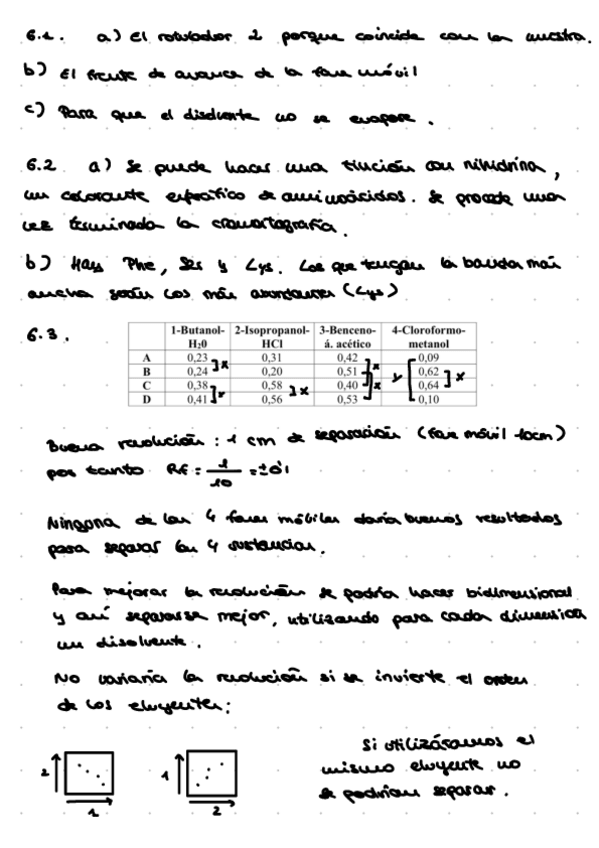 6.1. a) El rotulador 2 porque coincide con la muestra.
b) El frente de avance de la fase móvil
c) Para que el disolvente no se evapore.
6.2 a) Se puede hacer una tinción con ninhidrina,
un colorante específico de aminoácidos. Se procede una
vez terminada la cromatografía.
b) Hay Phe, Ser y Lys. Los que tengan la banda más
ancha serán los más abundantes (Lys)
6.3.
1-Butanol-H20 2-Isopropanol-HCl 3-Benceno-á. acético 4-Cloroformo-metanol
A 0,23 0,31 0,42 0,09
B 0,24 0,20 0,51 0,62
C 0,38 0,58 0,40 0,64
D 0,41 0,56 0,53 0,10
Buena resolución: 1 cm de separación (fase móvil 10cm)
por tanto Rf = 1/10 = ±0'1
Ninguna de las 4 fases móviles daría buenos resultados
para separar las 4 sustancias.
Para mejorar la resolución se podría hacer bidimensional
y así separarse mejor, utilizando para cada dimensión
un disolvente.
No variaría la resolución si se invierte el orden
de los eluyentes:
2 1
1 2
Si utilizáramos el
mismo eluyente no
se podrían separar.